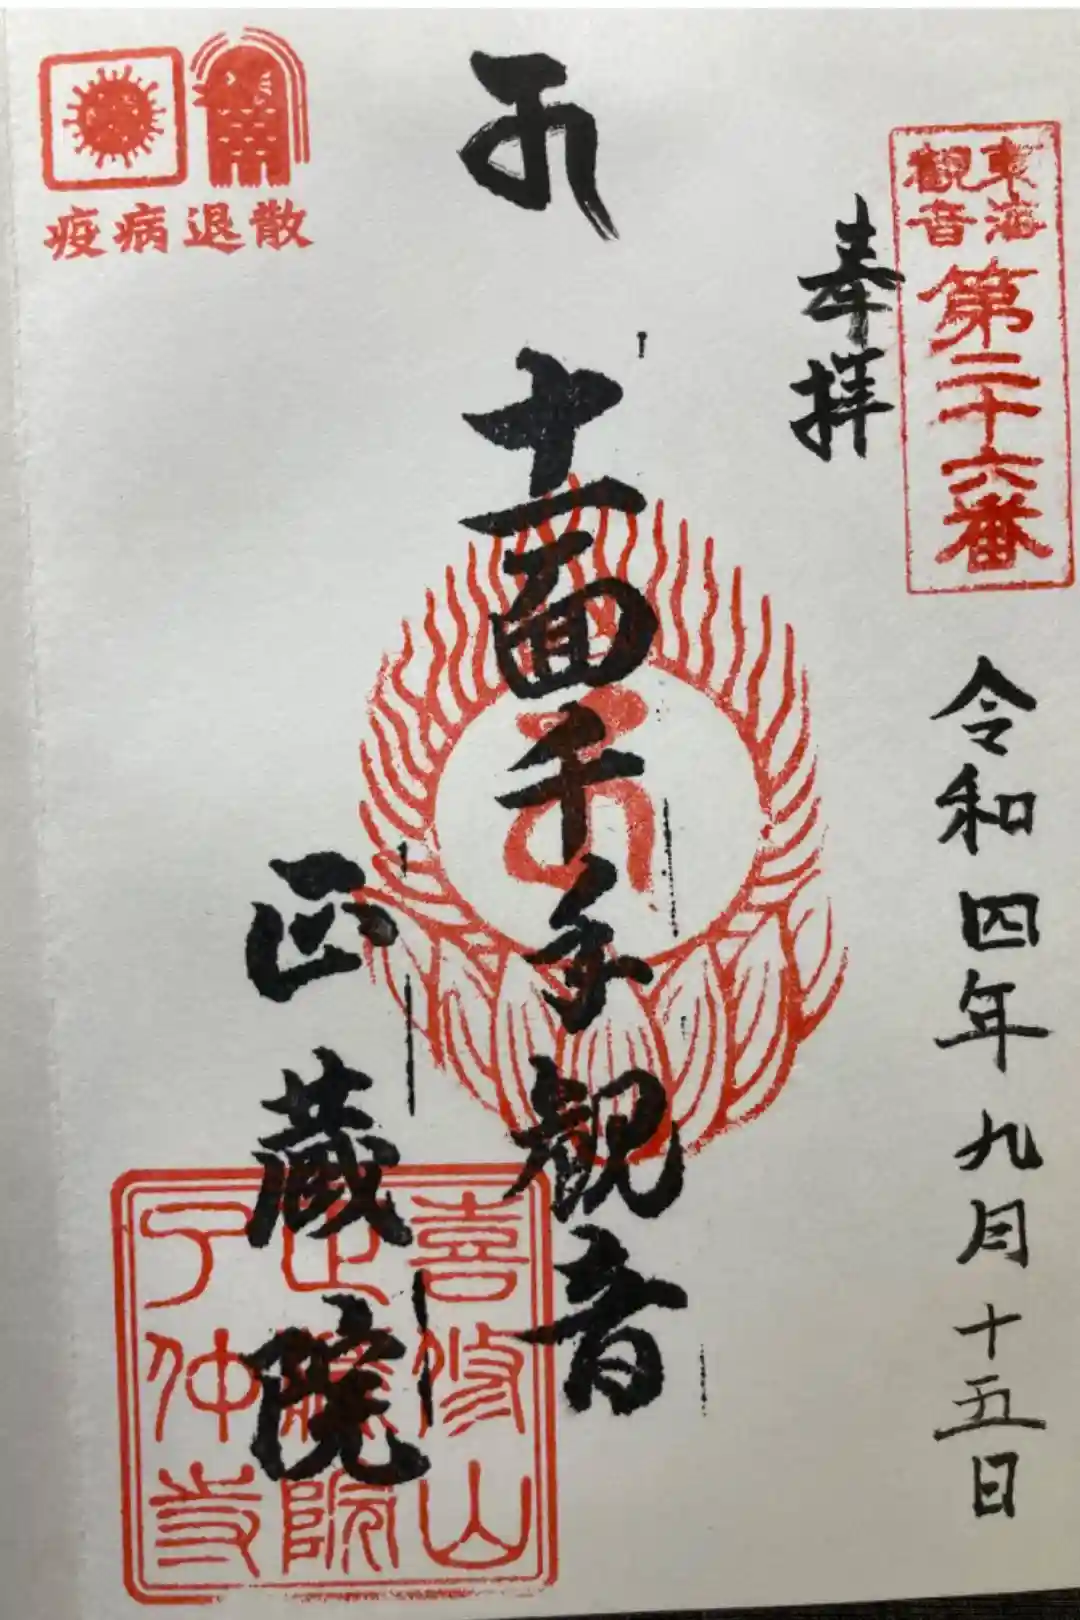 東海
観音
第二十六番
奉拝
令和四年九月十五日
十一面千手観音
正蔵院
喜修山
正蔵院
了仲寺
疫病退散